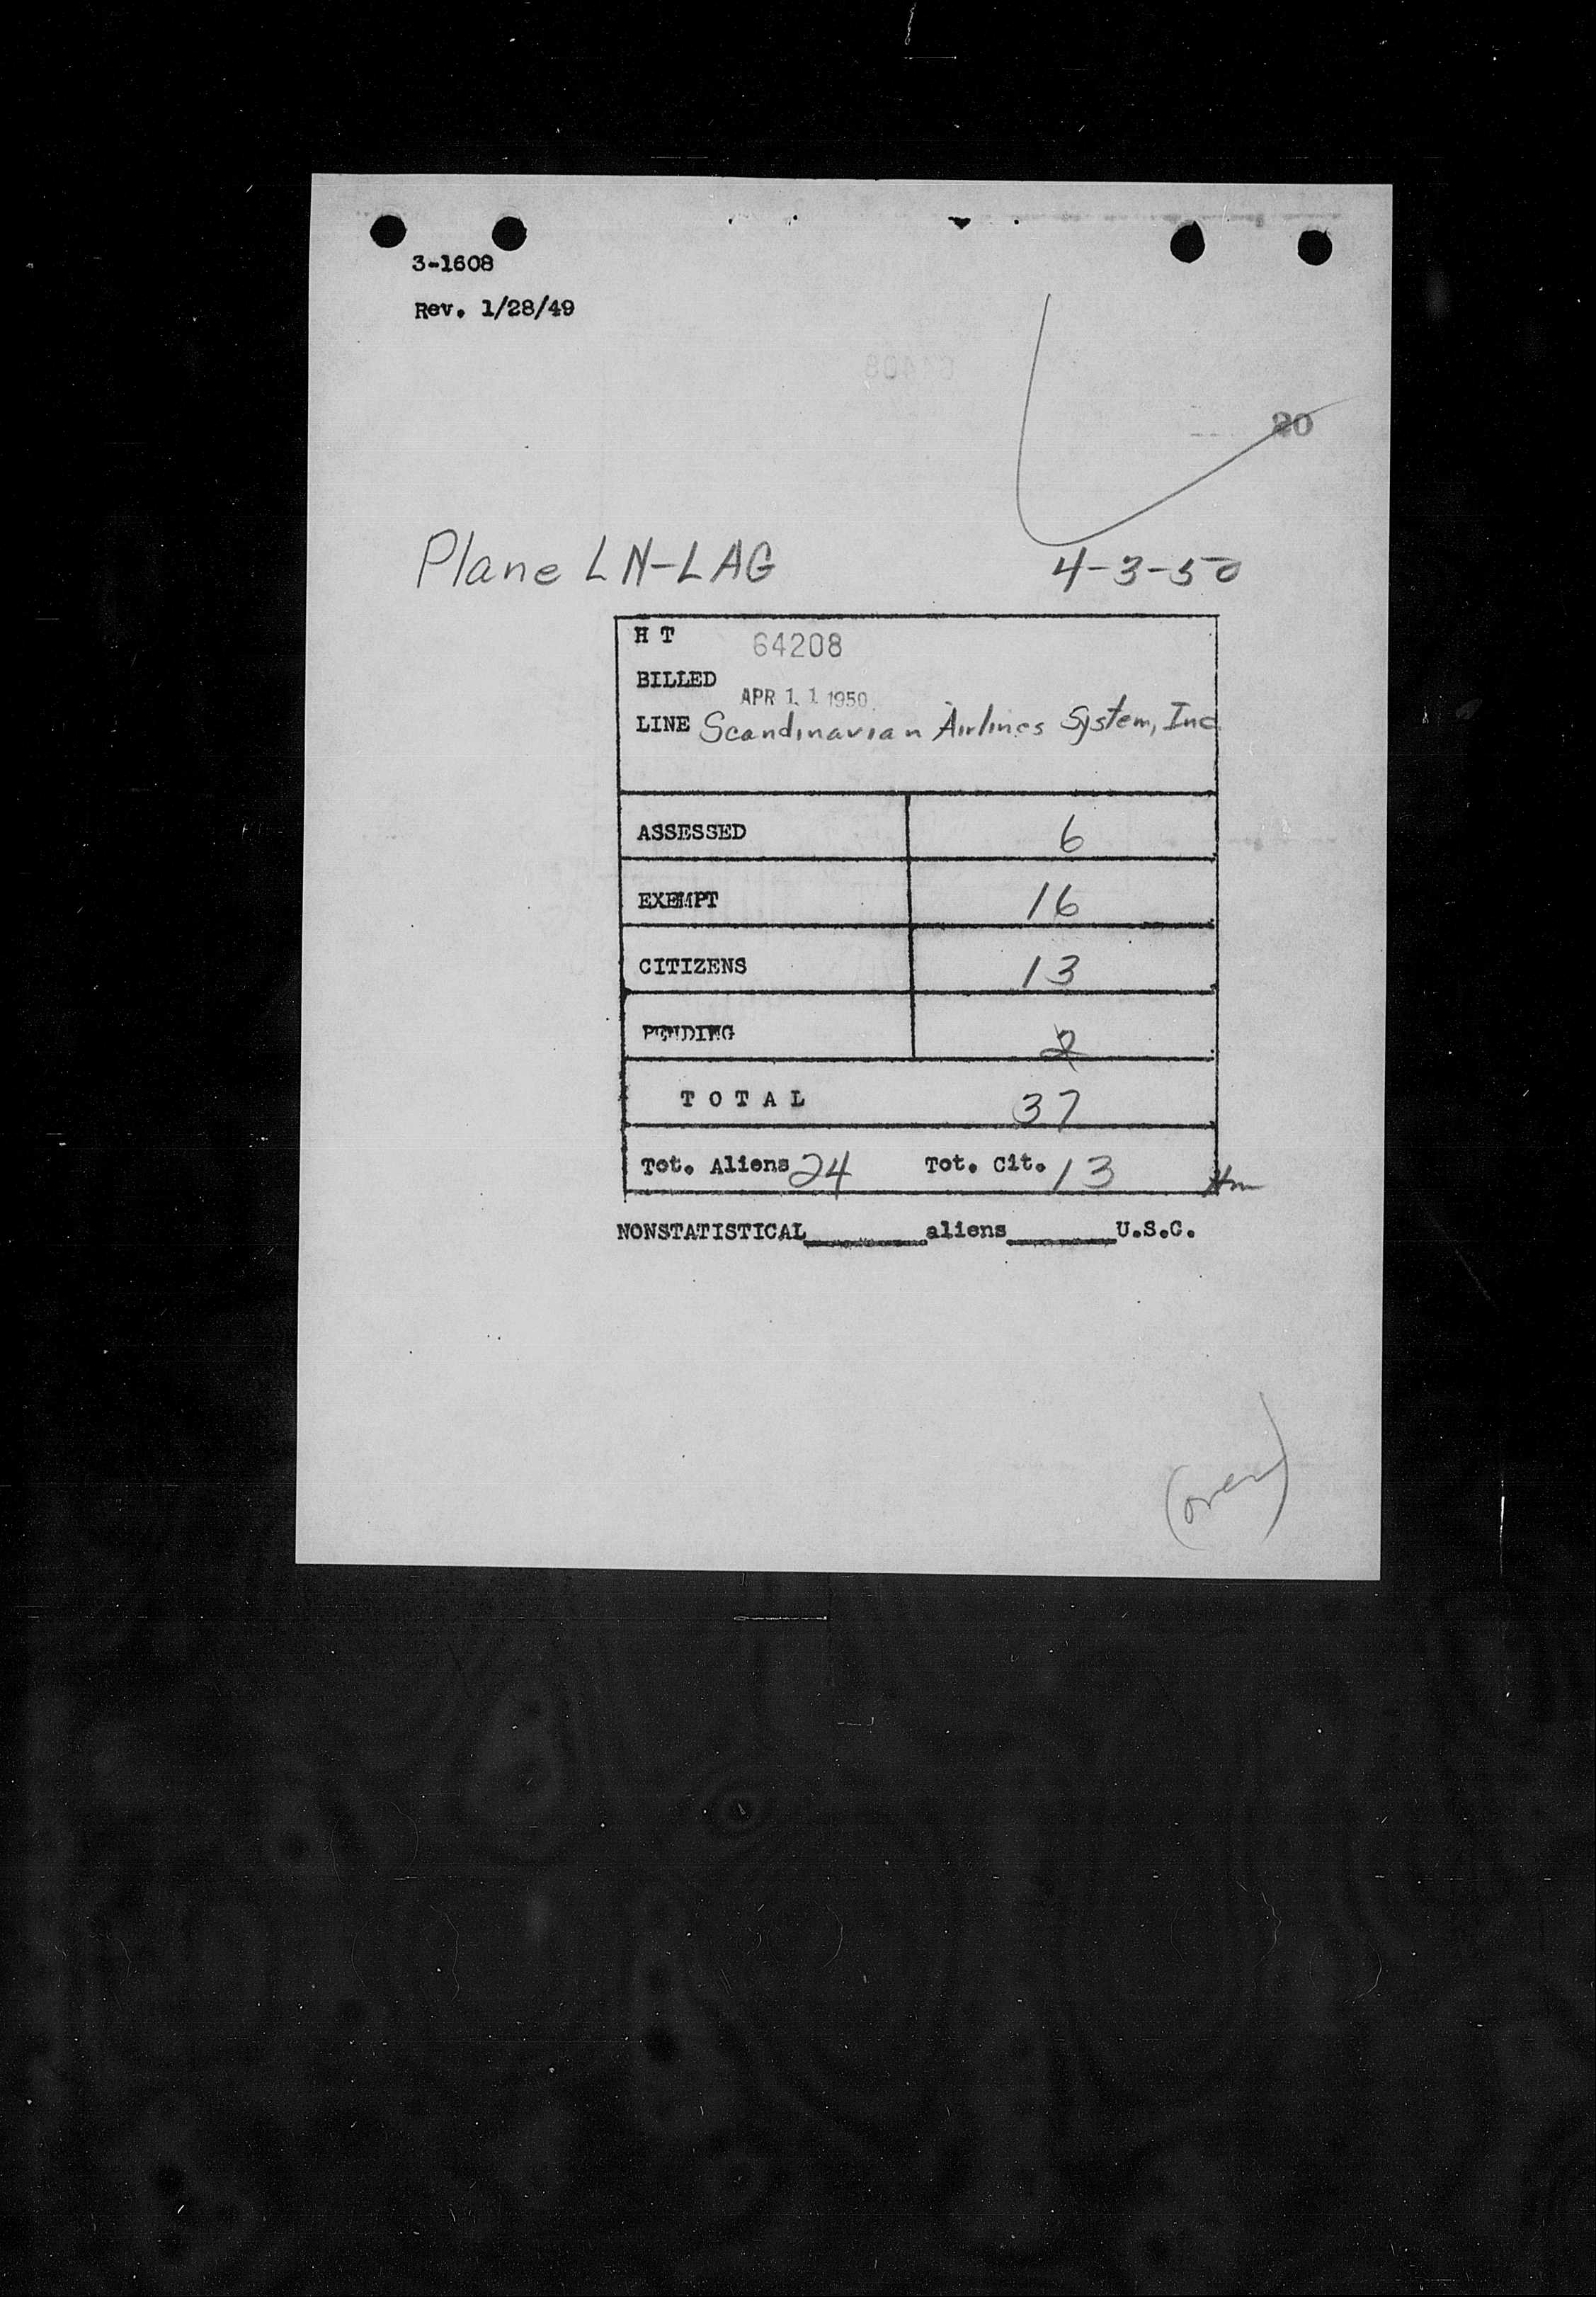 3-1608
Rev. 1/28/49
20
Plane LN-LAG 4-3-50
H T 64208
BILLED APR 11 1950
LINE Scandinavian Airlines System, Inc
ASSESSED 6
EXEMPT 16
CITIZENS 13
PENDING 2
TOTAL 37
Tot. Aliens 24 Tot. Cit. 13
NONSTATISTICAL________aliens________U.S.C.
(over)